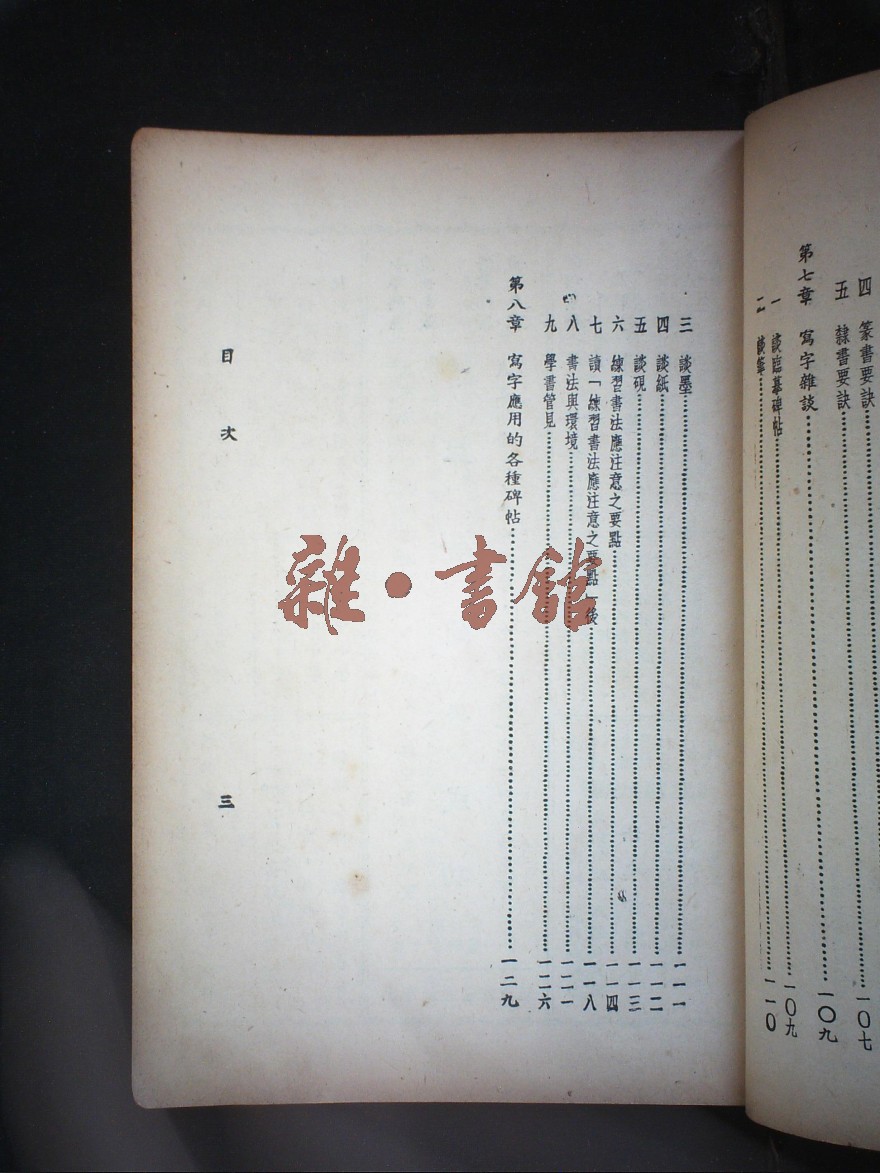 四 篆書要訣……一〇七
五 隸書要訣
第七章 寫字雜談……一〇九
一 談臨摹碑帖……一〇九
二 談筆……一一〇
三 談墨……一一一
四 談紙……一一二
五 談硯……一一三
六 練習書法應注意之要點……一一四
七 讀「練習書法應注意之要點」後……一一八
八 書法與環境……一二一
九 學書管見……一二六
第八章 寫字應用的各種碑帖……一二九
目次
三
雜·書館